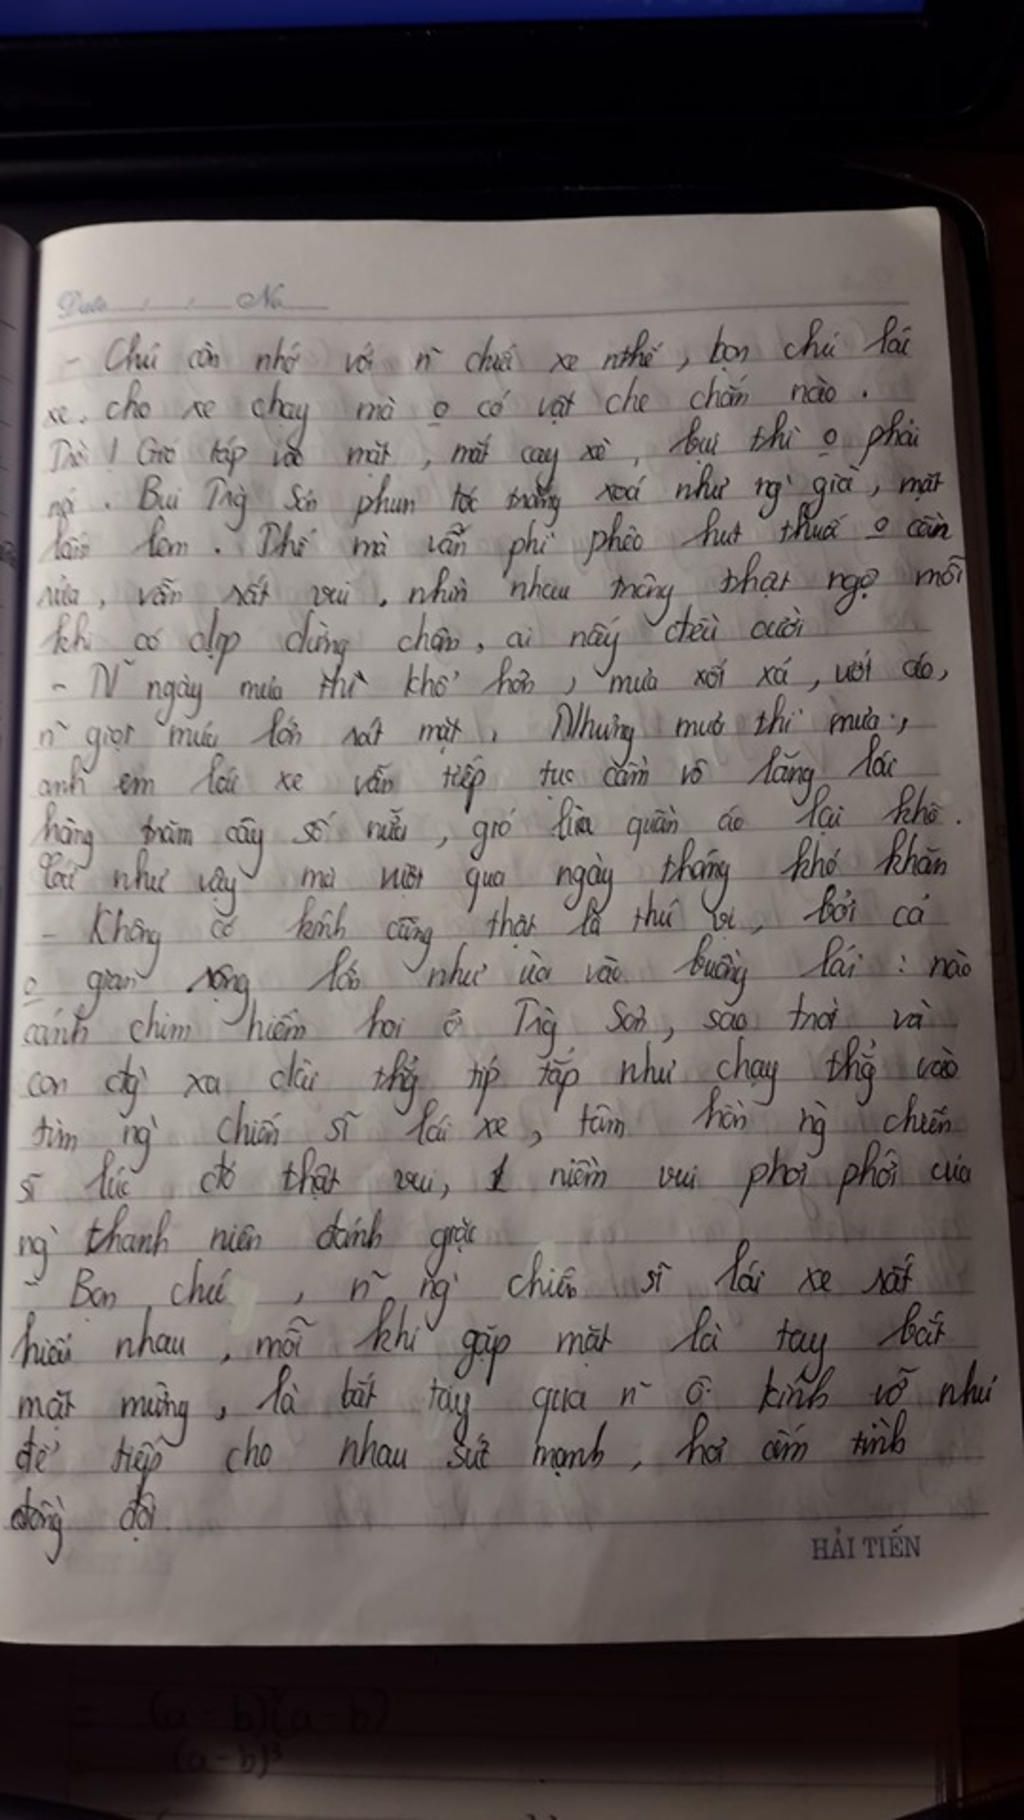 Date / / No
- Chú còn nhớ với n~ chiếc xe nthế, bọn chú lái
xe, cho xe chạy mà o có vật che chắn nào.
Trời! Gió táp vào mặt, mắt cay xè, bụi thì o phải
nói. Bụi Trg Sơn phun tóc trắng xoá như ng` già, mặt
lấm lem. Thế mà vẫn phì phèo hút thuốc o cần
rửa, vẫn rất vui, nhìn nhau trông thật ngộ mỗi
khi có dịp dừng chân, ai nấy đều cười
- N~ ngày mưa thì khổ hơn, mưa xối xả, ướt áo,
n~ giọt mưa lớn rát mặt. Nhưng mưa thì mưa,
anh em lái xe vẫn tiếp tục cầm vô lăng lái
hàng trăm cây số nữa, gió lùa quần áo lại khô.
Cứ như vậy mà vượt qua ngày tháng khó khăn
- Không có kính cũng thật là thú vị, bởi cả
o gian rộng lớn như ùa vào buồng lái: nào
cánh chim hiếm hoi ở Trg Sơn, sao trời và
con đg` xa dài thẳg típ tắp như chạy thẳg vào
tim ng` chiến sĩ lái xe, tâm hồn ng` chiến
sĩ lúc đó thật vui, 1 niềm vui phơi phới của
ng` thanh niên đánh giặc
- Bọn chú, n~ ng` chiến sĩ lái xe rất
hiểu nhau, mỗi khi gặp mặt là tay bắt
mặt mừng, là bắt tay qua n~ ô kính vỡ như
để tiếp cho nhau sức mạnh, hơi ấm tình
đồng đội.
HẢI TIẾN
(a - b)(a - b)
(a - b)³